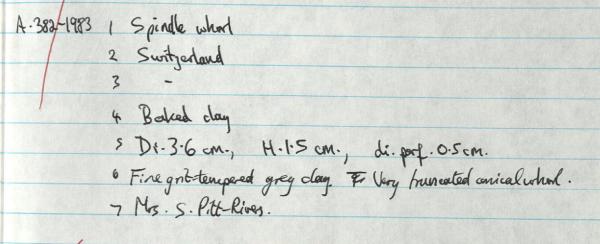 A.382-1983 1 Spindle whorl
2 Switzerland
3 -
4 Baked clay
5 Di. 3.6 cm., H. 1.5 cm., di. perf. 0.5 cm.
6 Fine grit-tempered grey clay. Very truncated conical whorl.
7 Mrs. S. Pitt-Rivers.